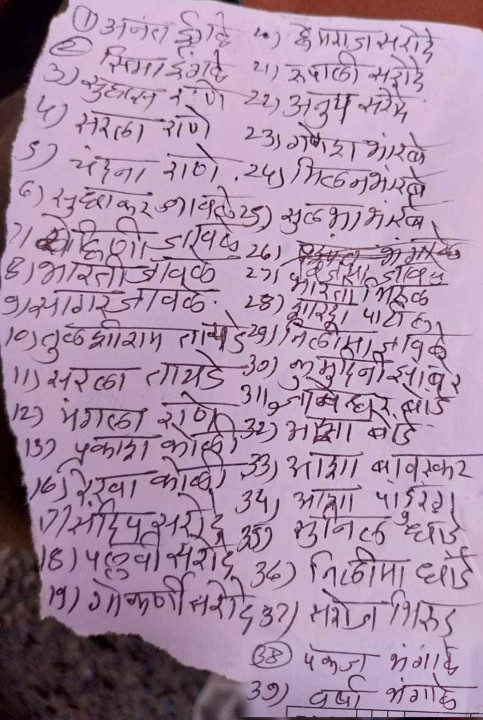 1) अनंत इंगळे
2) सिमा इंगळे
3) सुहास राणे
4) सरला राणे
5) वंदना राणे
6) सुधाकर जावळे
7) रोहिणी जावळे
8) भारती जावळे
9) सागर जावळे
10) तुळशीराम तायडे
11) सरला तायडे
12) मंगला राणे
15) प्रकाश कोळी
16) रेखा कोळी
17) संदिप सरोदे
18) पल्लवी सरोदे
19) गोकर्णा सरोदे
20) हेमराज सरोदे
21) रुपाली सरोदे
22) अनुप सरोदे
23) गणेश भारंबे
24) मिलन भारंबे
25) सुलभा भारंबे
26)
27)
भारती भिरुड
28) शारदा पाटील
29) निलीमा जावळे
30) कुमुदिनी झांबरे
31) बोंडे
32) आशा बोंडे
33) आशा बावस्कर
34) आशा पांडुरंग
35) सुनिल धांडे
36) निलीमा धांडे
37) सरोज भिरुड
38) पंकज भंगाळे
39) वर्षा भंगाळे